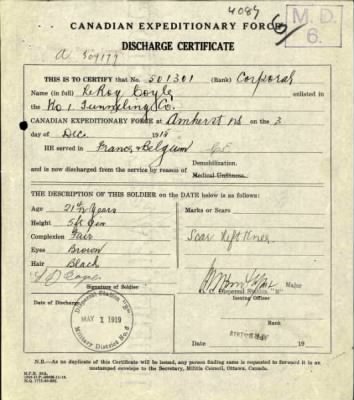 4089
M. D.
6.
CANADIAN EXPEDITIONARY FORCE
DISCHARGE CERTIFICATE
THIS IS TO CERTIFY that No. 501301 (Rank) Corporal
Name (in full) LeRoy enlisted in
the No 1 Tunneling Co.
CANADIAN EXPEDITIONARY FORCE at Amherst NS on the 3
day of Dec. 1915
HE served in France & Belgium
and is now discharged from the service by reason of Demobilization.
Medical Unfitness.
THE DESCRIPTION OF THIS SOLDIER on the DATE below is as follows:
Age 21 Years
Height 5 ft
Complexion Fair
Eyes Brown
Hair Black
Signature of Soldier
Date of Discharge
Marks or Scars
Scar left knee
Major
Dispersal Station
Dispersal Station
MAY 1 1919
Military District No. 6
19
N.B.—As no duplicate of this Certificate will be issued, any person finding same is requested to forward it in an
unstamped envelope to the Secretary, Militia Council, Ottawa, Canada.